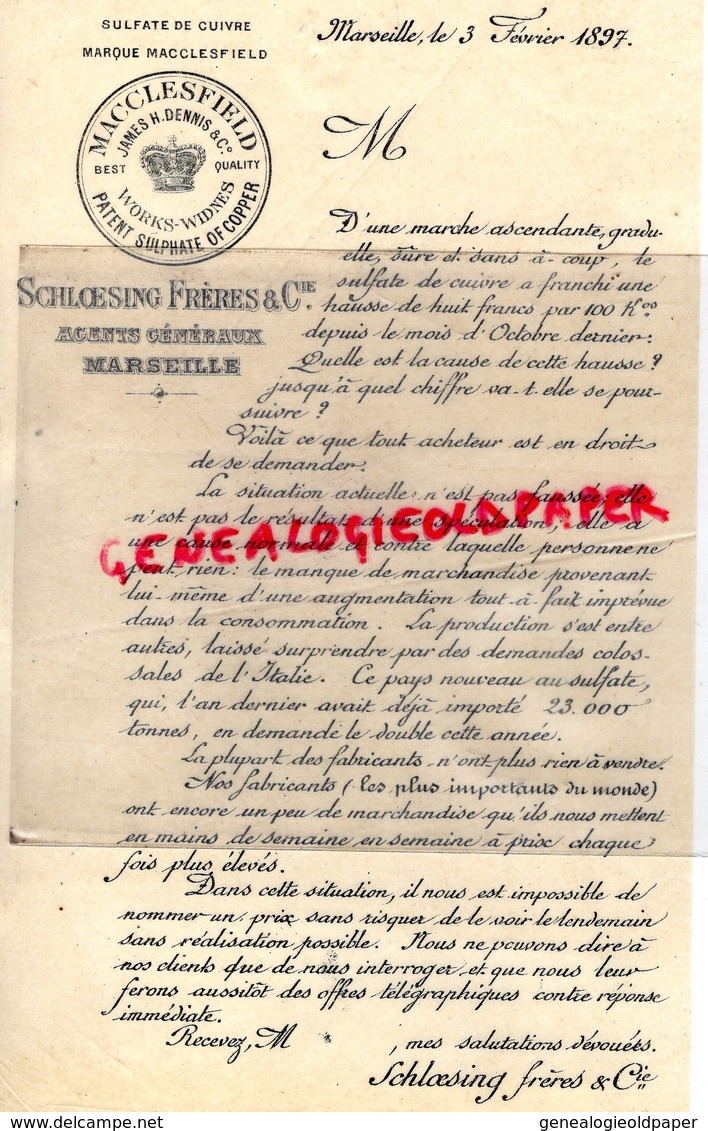 SULFATE DE CUIVRE
MARQUE MACCLESFIELD
MACCLESFIELD
JAMES H. DENNIS & Cº
BEST QUALITY
WORKS-WIDNES
PATENT SULPHATE OF COPPER
SCHLŒSING FRÈRES & CIE
AGENTS GÉNÉRAUX
MARSEILLE
Marseille, le 3 Février 1897.
M
D'une marche ascendante, gradu-
elle, sûre et sans à-coup, le
sulfate de cuivre a franchi une
hausse de huit francs par 100 Kos
depuis le mois d'Octobre dernier:
Quelle est la cause de cette hausse?
jusqu'à quel chiffre va-t-elle se pour-
suivre?
Voilà ce que tout acheteur est en droit
de se demander:
La situation actuelle n'est pas faussée; elle
n'est pas le résultat d'une spéculation; elle a
une cause normale et contre laquelle personne ne
peut rien: le manque de marchandise provenant
lui-même d'une augmentation tout-à-fait imprévue
dans la consommation. La production s'est entre
autres, laissé surprendre par des demandes colos-
sales de l'Italie. Ce pays nouveau au sulfate,
qui, l'an dernier avait déjà importé 23.000
tonnes, en demande le double cette année.
La plupart des fabricants n'ont plus rien à vendre.
Nos fabricants (les plus importants du monde)
ont encore un peu de marchandise qu'ils nous mettent
en mains de semaine en semaine à prix chaque
fois plus élevés.
Dans cette situation, il nous est impossible de
nommer un prix sans risquer de le voir le lendemain
sans réalisation possible. Nous ne pouvons dire à
nos clients que de nous interroger et que nous leur
ferons aussitôt des offres télégraphiques contre réponse
immédiate.
Recevez, M , mes salutations dévouées.
Schlœsing frères & Cie
GENEALOGIEOLDPAPER
delcampe.net
genealogieoldpaper